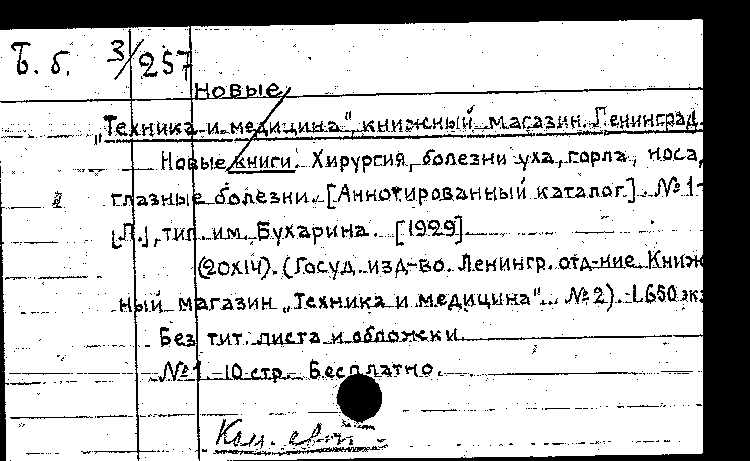 Б. б. 3/257
Новые
„Техника и медицина", книжный магазин. Ленинград.
Новые книги. Хирургия, болезни уха, горла, носа,
глазные болезни. [Аннотированный каталог]. №1-
[Л.], тип. им. Бухарина. [1929]
(20х14). (Госуд. изд-во. Ленингр. отд-ние. Книж
ный магазин „Техника и медицина"... №2). 1.650 экз
Без тит. листа и обложки.
№1. 10 стр. Бесплатно.